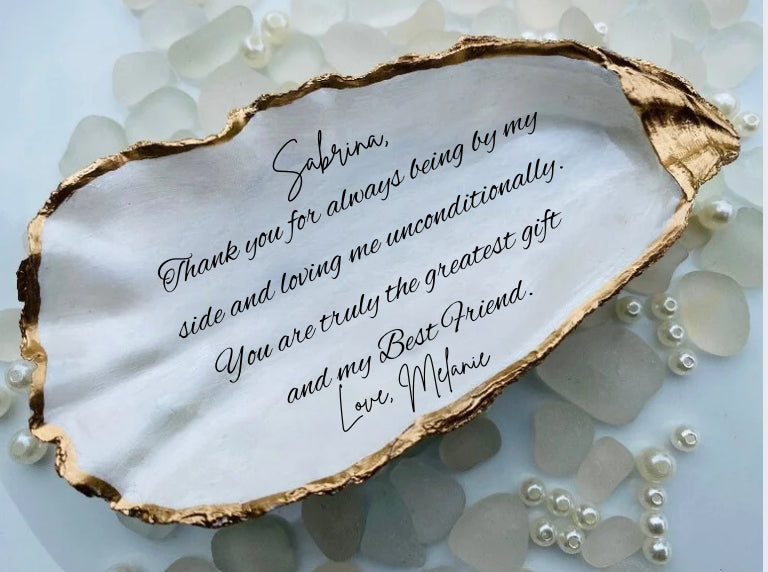 Sabrina,
Thank you for always being by my
side and loving me unconditionally.
You are truly the greatest gift
and my Best Friend.
Love, Melanie